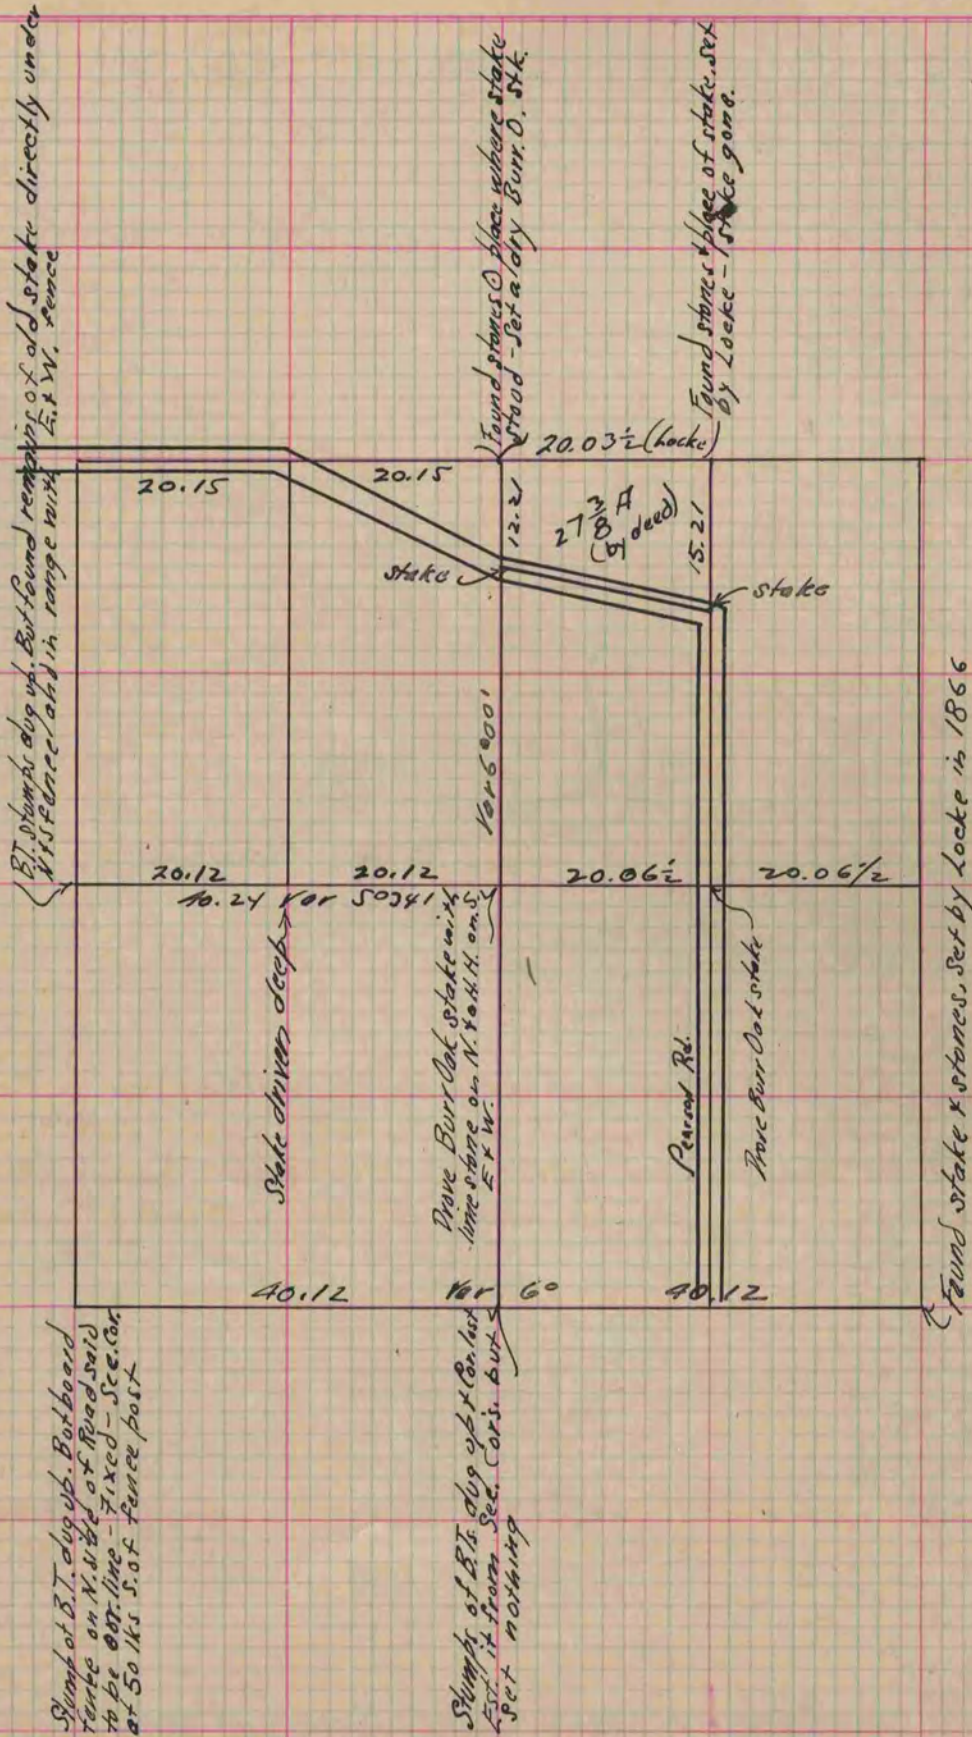 (B.T. stumps dug up. But found remains of old stake directly under
N & S fence and in range with E. & W. fence
(Found stones & place where stake
stood - Set a dry Burr. O. stk.
Found stones & place of stake set
by Locke - stake gone.
20.03½ (Locke)
20.15
20.15
12.21
27 3/8 A
(by deed)
15.21
stake
stake
Var 6°00'
20.12
20.12
20.06½
20.06½
40.24 Var 5°34'
Stake driven deep
Drove Burr Oak stake with
limestone on N. & a H.H. on S.
E & W.
Pearson Rd.
Drove Burr Oak stake
Found stake & stones, set by Locke in 1866
40.12
Var 6°
40.12
Stump of B.T. dug up. But board
fence on N. side of Road said
to be on line - Fixed - Sec. Cor.
at 50 lks S. of fence post
Stumps of B.Ts. dug up & Cor. lost
Est. it from Sec. Cors. but
set nothing